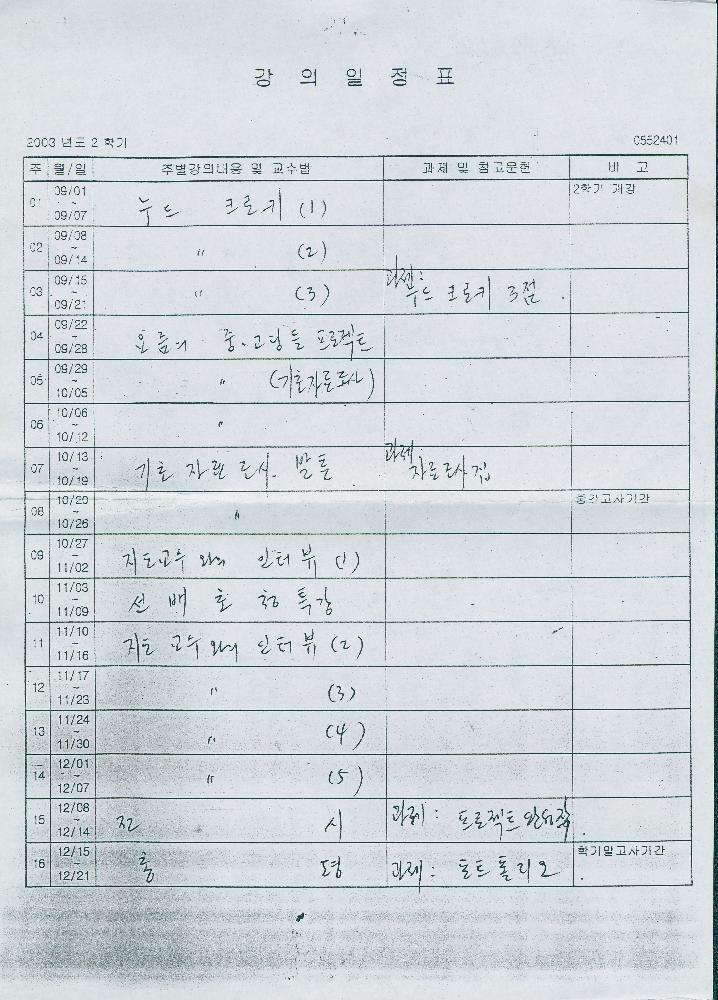 강 의 일 정 표
2003 년도 2 학기 0552401
주 월/일 주별강의내용 및 교수법 과제 및 참고문헌 비 고
01 09/01 ~ 09/07 누드 크로키 (1) 2학기 개강
02 09/08 ~ 09/14 〃 (2)
03 09/15 ~ 09/21 〃 (3) 과제: 누드 크로키 3점.
04 09/22 ~ 09/28 요즘의 중·고딩들 프로젝트
05 09/29 ~ 10/05 〃 (기초자료조사)
06 10/06 ~ 10/12 〃
07 10/13 ~ 10/19 기초 자료 조사. 발표 과제 자료조사집
08 10/20 ~ 10/26 〃 중간고사기간
09 10/27 ~ 11/02 지도교수와의 인터뷰 (1)
10 11/03 ~ 11/09 선배 초청 특강
11 11/10 ~ 11/16 지도 교수와의 인터뷰 (2)
12 11/17 ~ 11/23 〃 (3)
13 11/24 ~ 11/30 〃 (4)
14 12/01 ~ 12/07 〃 (5)
15 12/08 ~ 12/14 전 시 과제: 프로젝트 완성작.
16 12/15 ~ 12/21 총 평 과제: 포트폴리오. 학기말고사기간